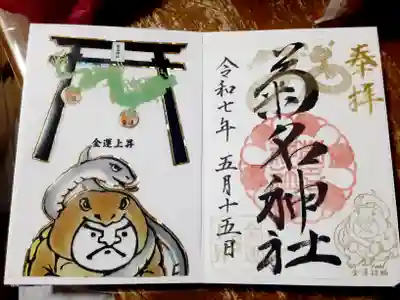 奉拝
菊名神社
令和七年 五月十五日
金運上昇